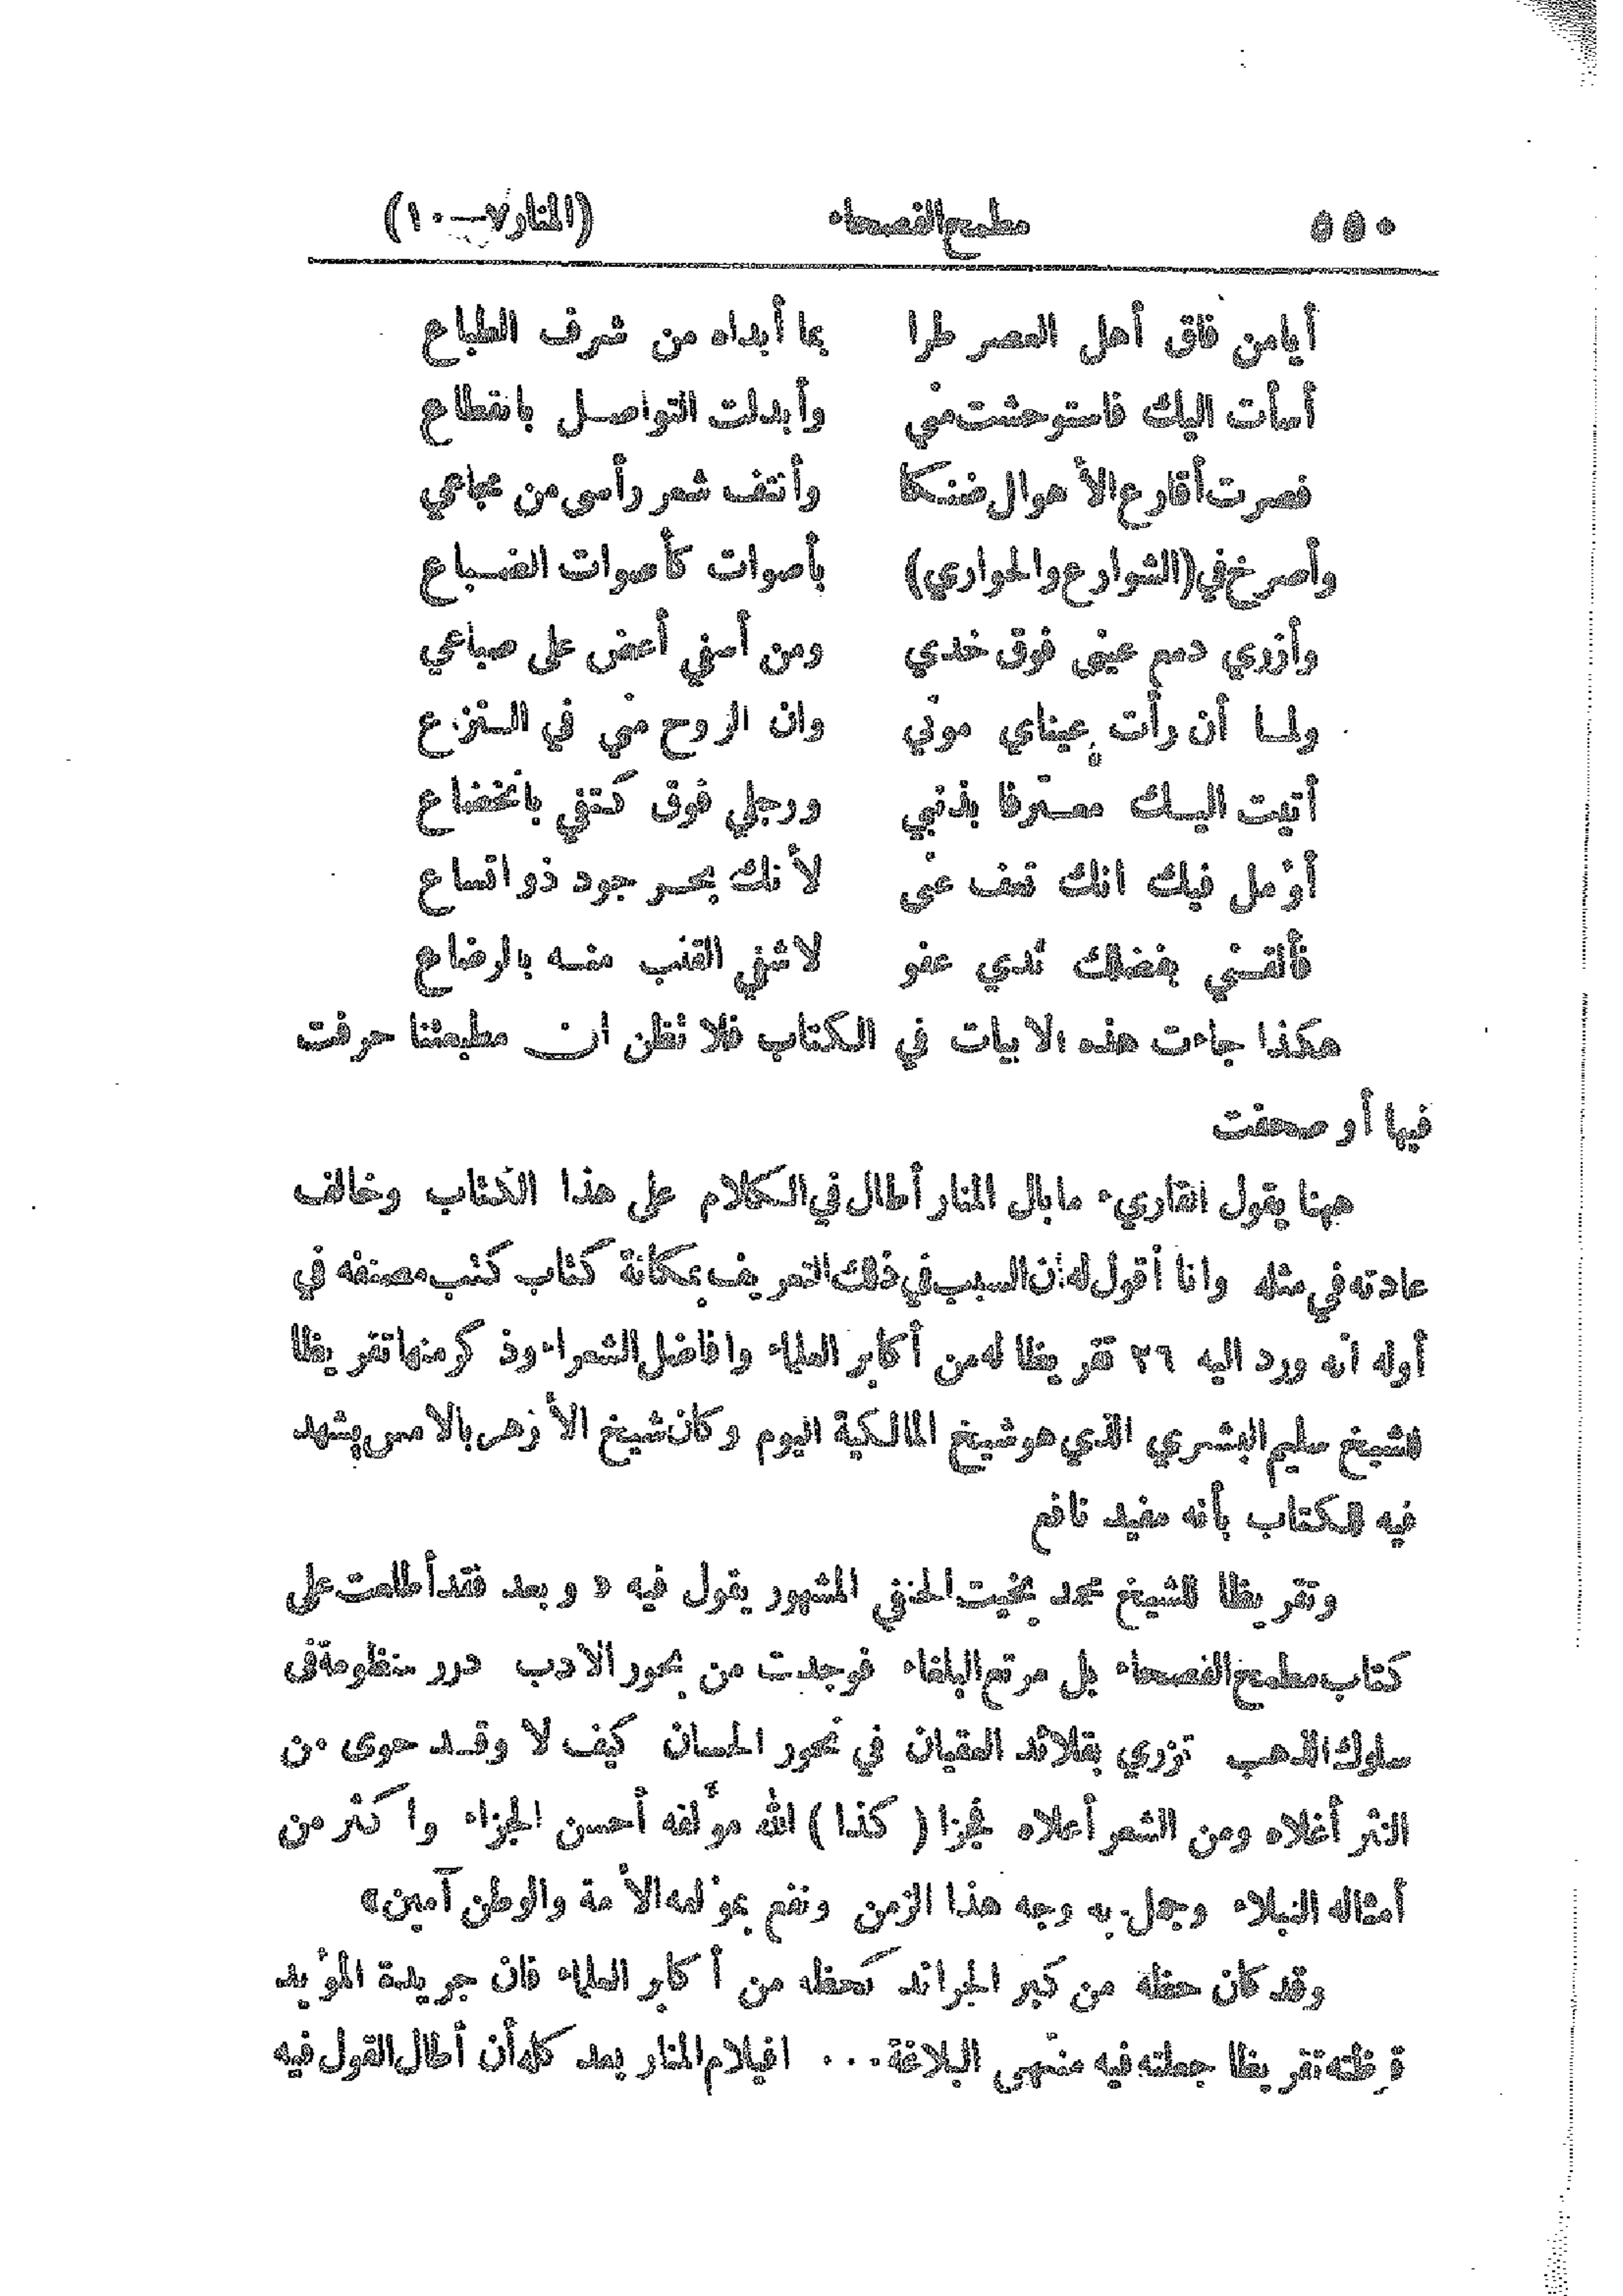 ٥٥٠ مطمح الفصحاء (المنار ٧—١٠)
أيامن فاق أهل العصر طرا بما أبداه من شرف الطباع
أسأت اليك فاستوحشت مني وأبدلت التواصل بانقطاع
فصرت أقارع الأهوال ضنكا وأنتف شعر رأسى من مجاعي
وأصرخ في (الشوارع والحواري) بأصوات كأصوات الضباع
وأزري دمع عينى فوق خدي ومن أسفي أعض على صباعي
ولما أن رأت عيناي موتي وان الروح مني في التزع
أتيت اليك معترفا بذنبي ورجلي فوق كتفي بانخضاع
أؤمل فيك انك تعف عنى لأنك بحر جود ذو اتساع
فألقني بفضلك ثدي عفو لاشفي القلب منه بالرضاع
هكذا جاءت هذه الابيات في الكتاب فلا تظن ان مطبعتنا حرفت
فيها أو صحفت
ههنا يقول القاريء ما بال المنار أطال في الكلام على هذا الكتاب وخالف
عادته في مثله وانا أقول له أن السبب في ذلك التعريف بمكانة كتاب كتب مصنفه في
أوله انه ورد اليه ٢٦ تقريظا له من أكابر العلماء وافاضل الشعراء وذكر منها تقريظا
للشيخ سليم البشري الذي هو شيخ المالكية اليوم وكان شيخ الأزهر بالامس يشهد
فيه للكتاب بأنه مفيد نافع
وتقريظا للشيخ محمد بخيت الحنفي المشهور يقول فيه « وبعد فقد أطلعت على
كتاب مطمح الفصحاء بل مرتع البلغاء فوجدت من بحور الادب درر منظومة فى
سلوك الذهب تزري بقلائد العقيان في نحور الحسان كيف لا وقد حوى من
النثر أغلاه ومن الشعر أعلاه فجزا (كذا) الله مؤلفه أحسن الجزاء واكثر من
أمثاله النبلاء وجمل به وجه هذا الزمن ونفع بمؤلفه الأمة والوطن آمين»
وقد كان حظه من كبر الجرائد كحظه من أكابر العلماء فان جريدة المؤيد
قرظته تقريظا جعلته فيه منتهى البلاغة... افيلام المنار بعد كله أن أطال القول فيه